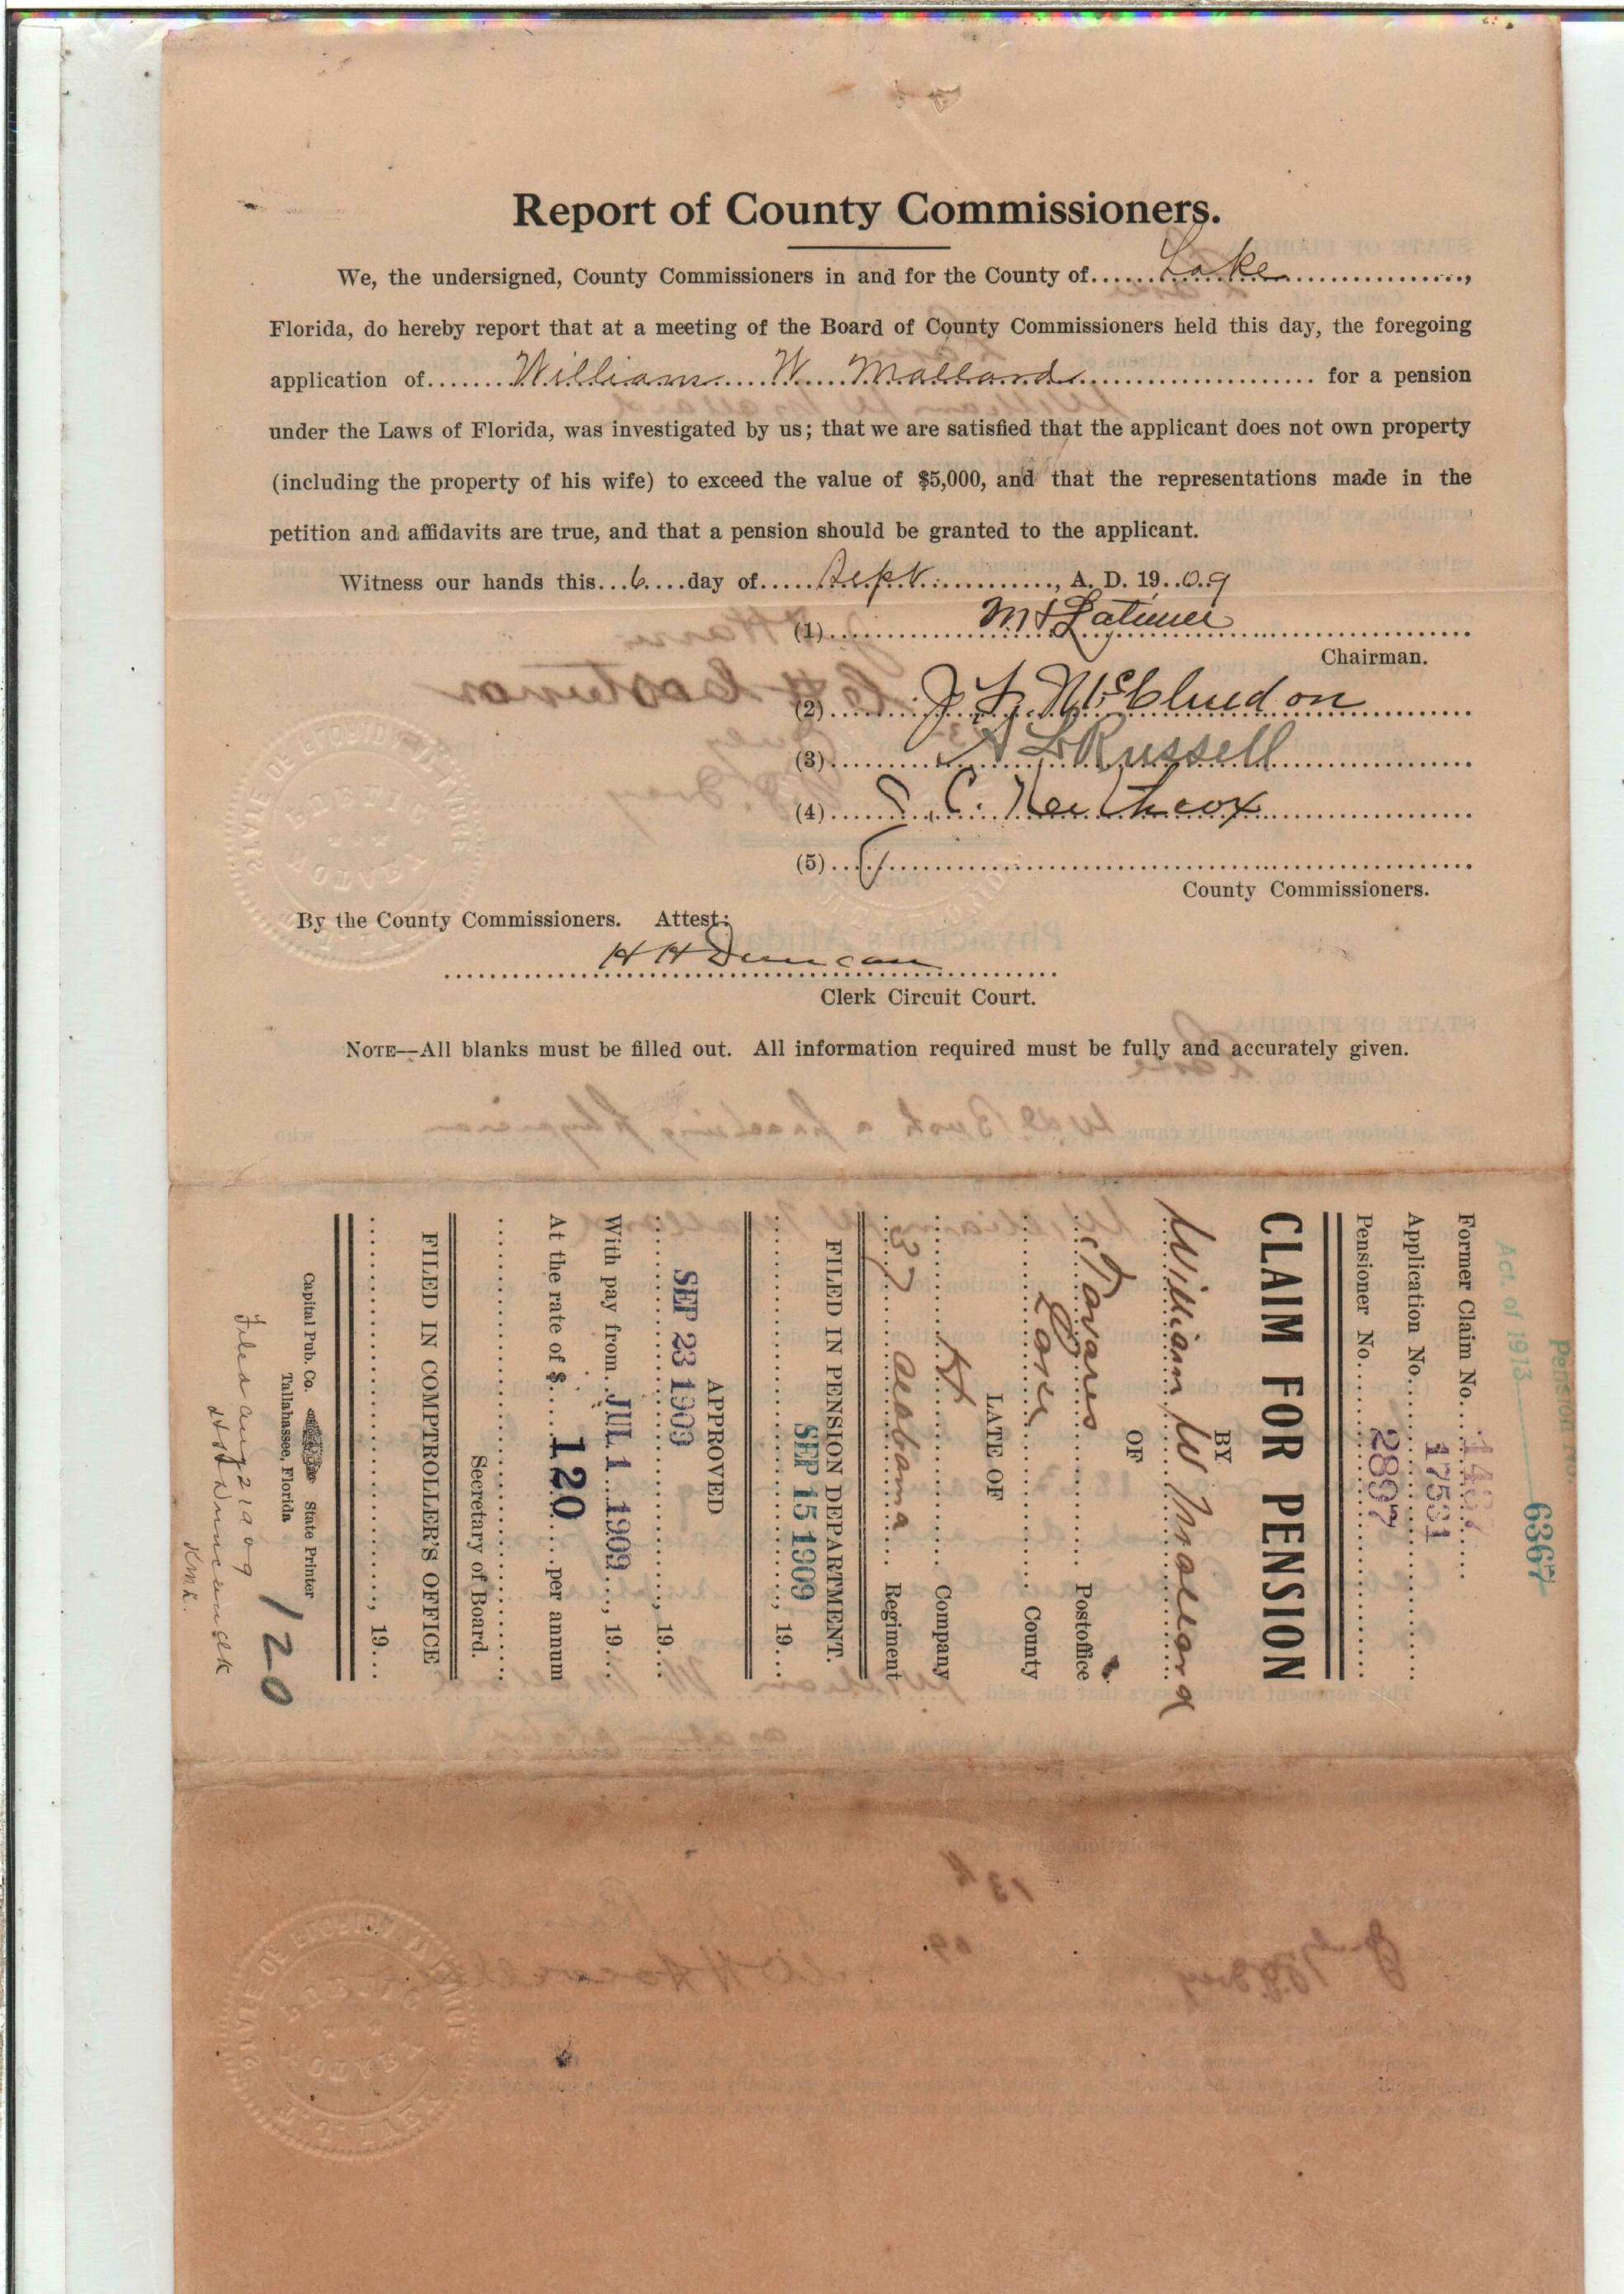 Report of County Commissioners.
We, the undersigned, County Commissioners in and for the County of......Lake..................,
Florida, do hereby report that at a meeting of the Board of County Commissioners held this day, the foregoing
application of.......William W. Mallard.......................... for a pension
under the Laws of Florida, was investigated by us; that we are satisfied that the applicant does not own property
(including the property of his wife) to exceed the value of $5,000, and that the representations made in the
petition and affidavits are true, and that a pension should be granted to the applicant.
Witness our hands this...6....day of.....Sept.............., A. D. 19..09
(1).............. Latimer ..............................
Chairman.
(2)........J. ..............................
(3)..........A L Russell..............................
(4)....... C. ..............................
(5)..............................
County Commissioners.
By the County Commissioners. Attest:
H H Duncan
Clerk Circuit Court.
NOTE—All blanks must be filled out. All information required must be fully and accurately given.
Pension No. 6367
Act. of 1913
Former Claim No.
Application No... 17531
Pensioner No..... 2897
CLAIM FOR PENSION
BY
William W Mallard
OF
Tavares Postoffice
Lake County
LATE OF
H Company
37 Alabama Regiment
FILED IN PENSION DEPARTMENT.
SEP 15 1909, 19...
APPROVED
SEP 23 1909, 19...
With pay from..JUL 1 1909..., 19...
At the rate of $....120.....per annum
Secretary of Board.
FILED IN COMPTROLLER'S OFFICE
, 19...
Capital Pub. Co. State Printer
Tallahassee, Florida
120
Filed Aug 2 1909
H H Duncan Clk